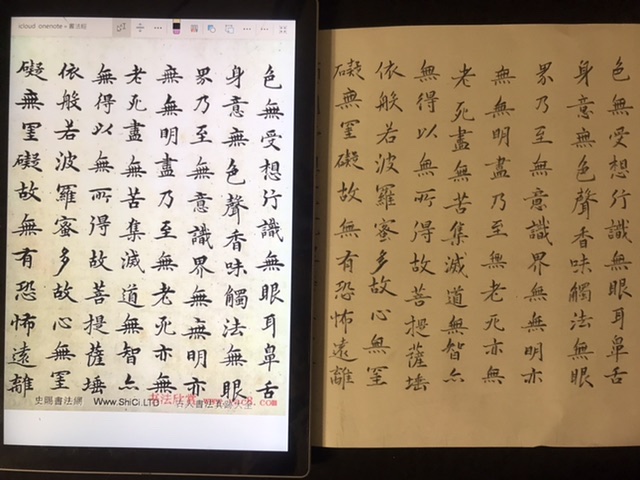 色無受想行識無眼耳鼻舌
身意無色聲香味觸法無眼
界乃至無意識界無無明亦
無無明盡乃至無老死亦無
老死盡無苦集滅道無智亦
無得以無所得故菩提薩埵
依般若波羅蜜多故心無罣
礙無罣礙故無有恐怖遠離
史賜書法網 Www.ShiCi.LTD
书法欣赏
色無受想行識無眼耳鼻舌
身意無色聲香味觸法無眼
界乃至無意識界無無明亦
無無明盡乃至無老死亦無
老死盡無苦集滅道無智亦
無得以無所得故菩提薩埵
依般若波羅蜜多故心無罣
礙無罣礙故無有恐怖遠離